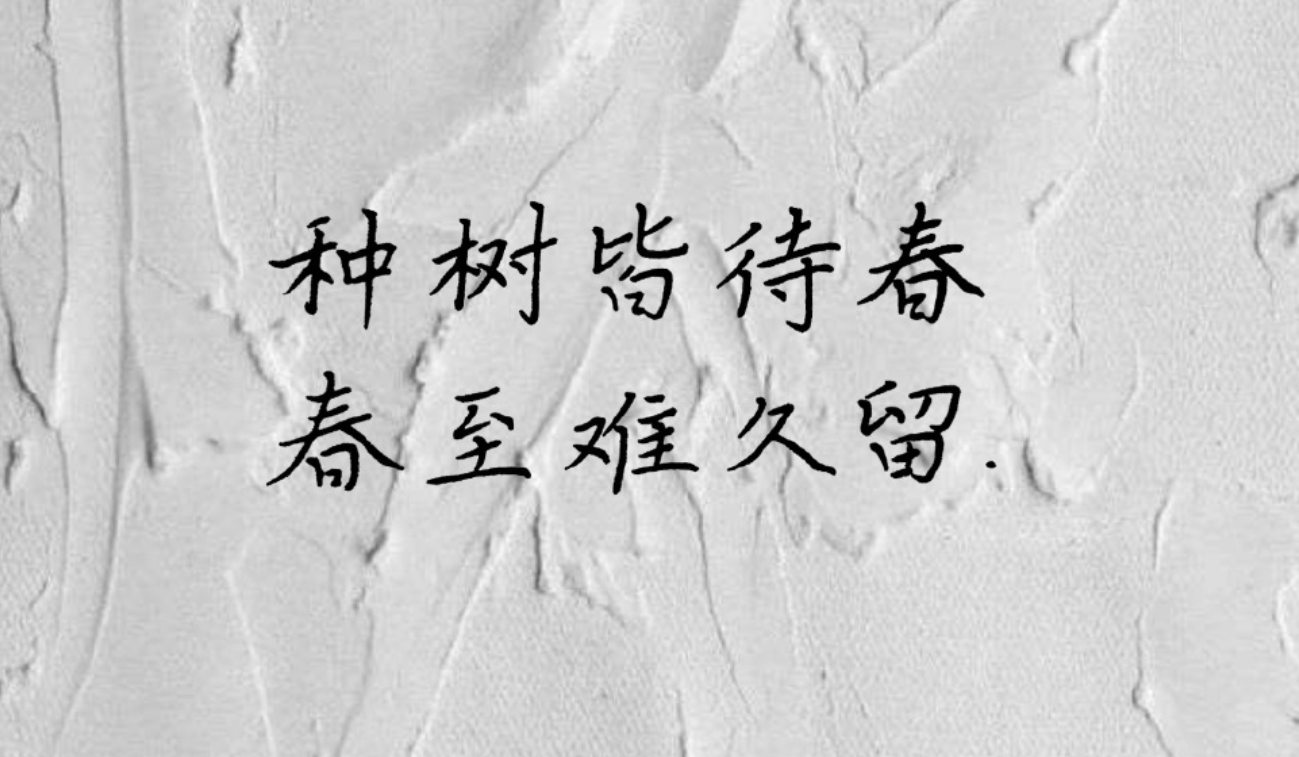 种树皆待春
春至难久留.